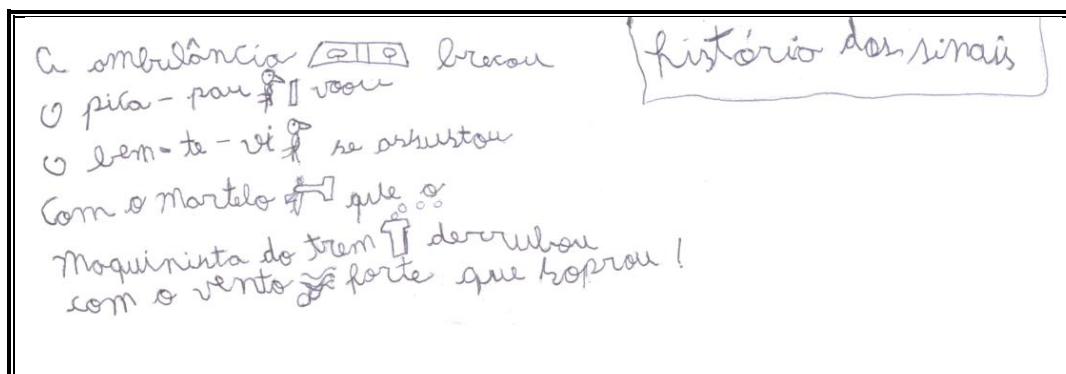 história dos sinais
A ambulância brecou
O pica-pau voou
O bem-te-vi se assustou
Com o martelo que o
maquinista do trem derrubou
com o vento forte que soprou!